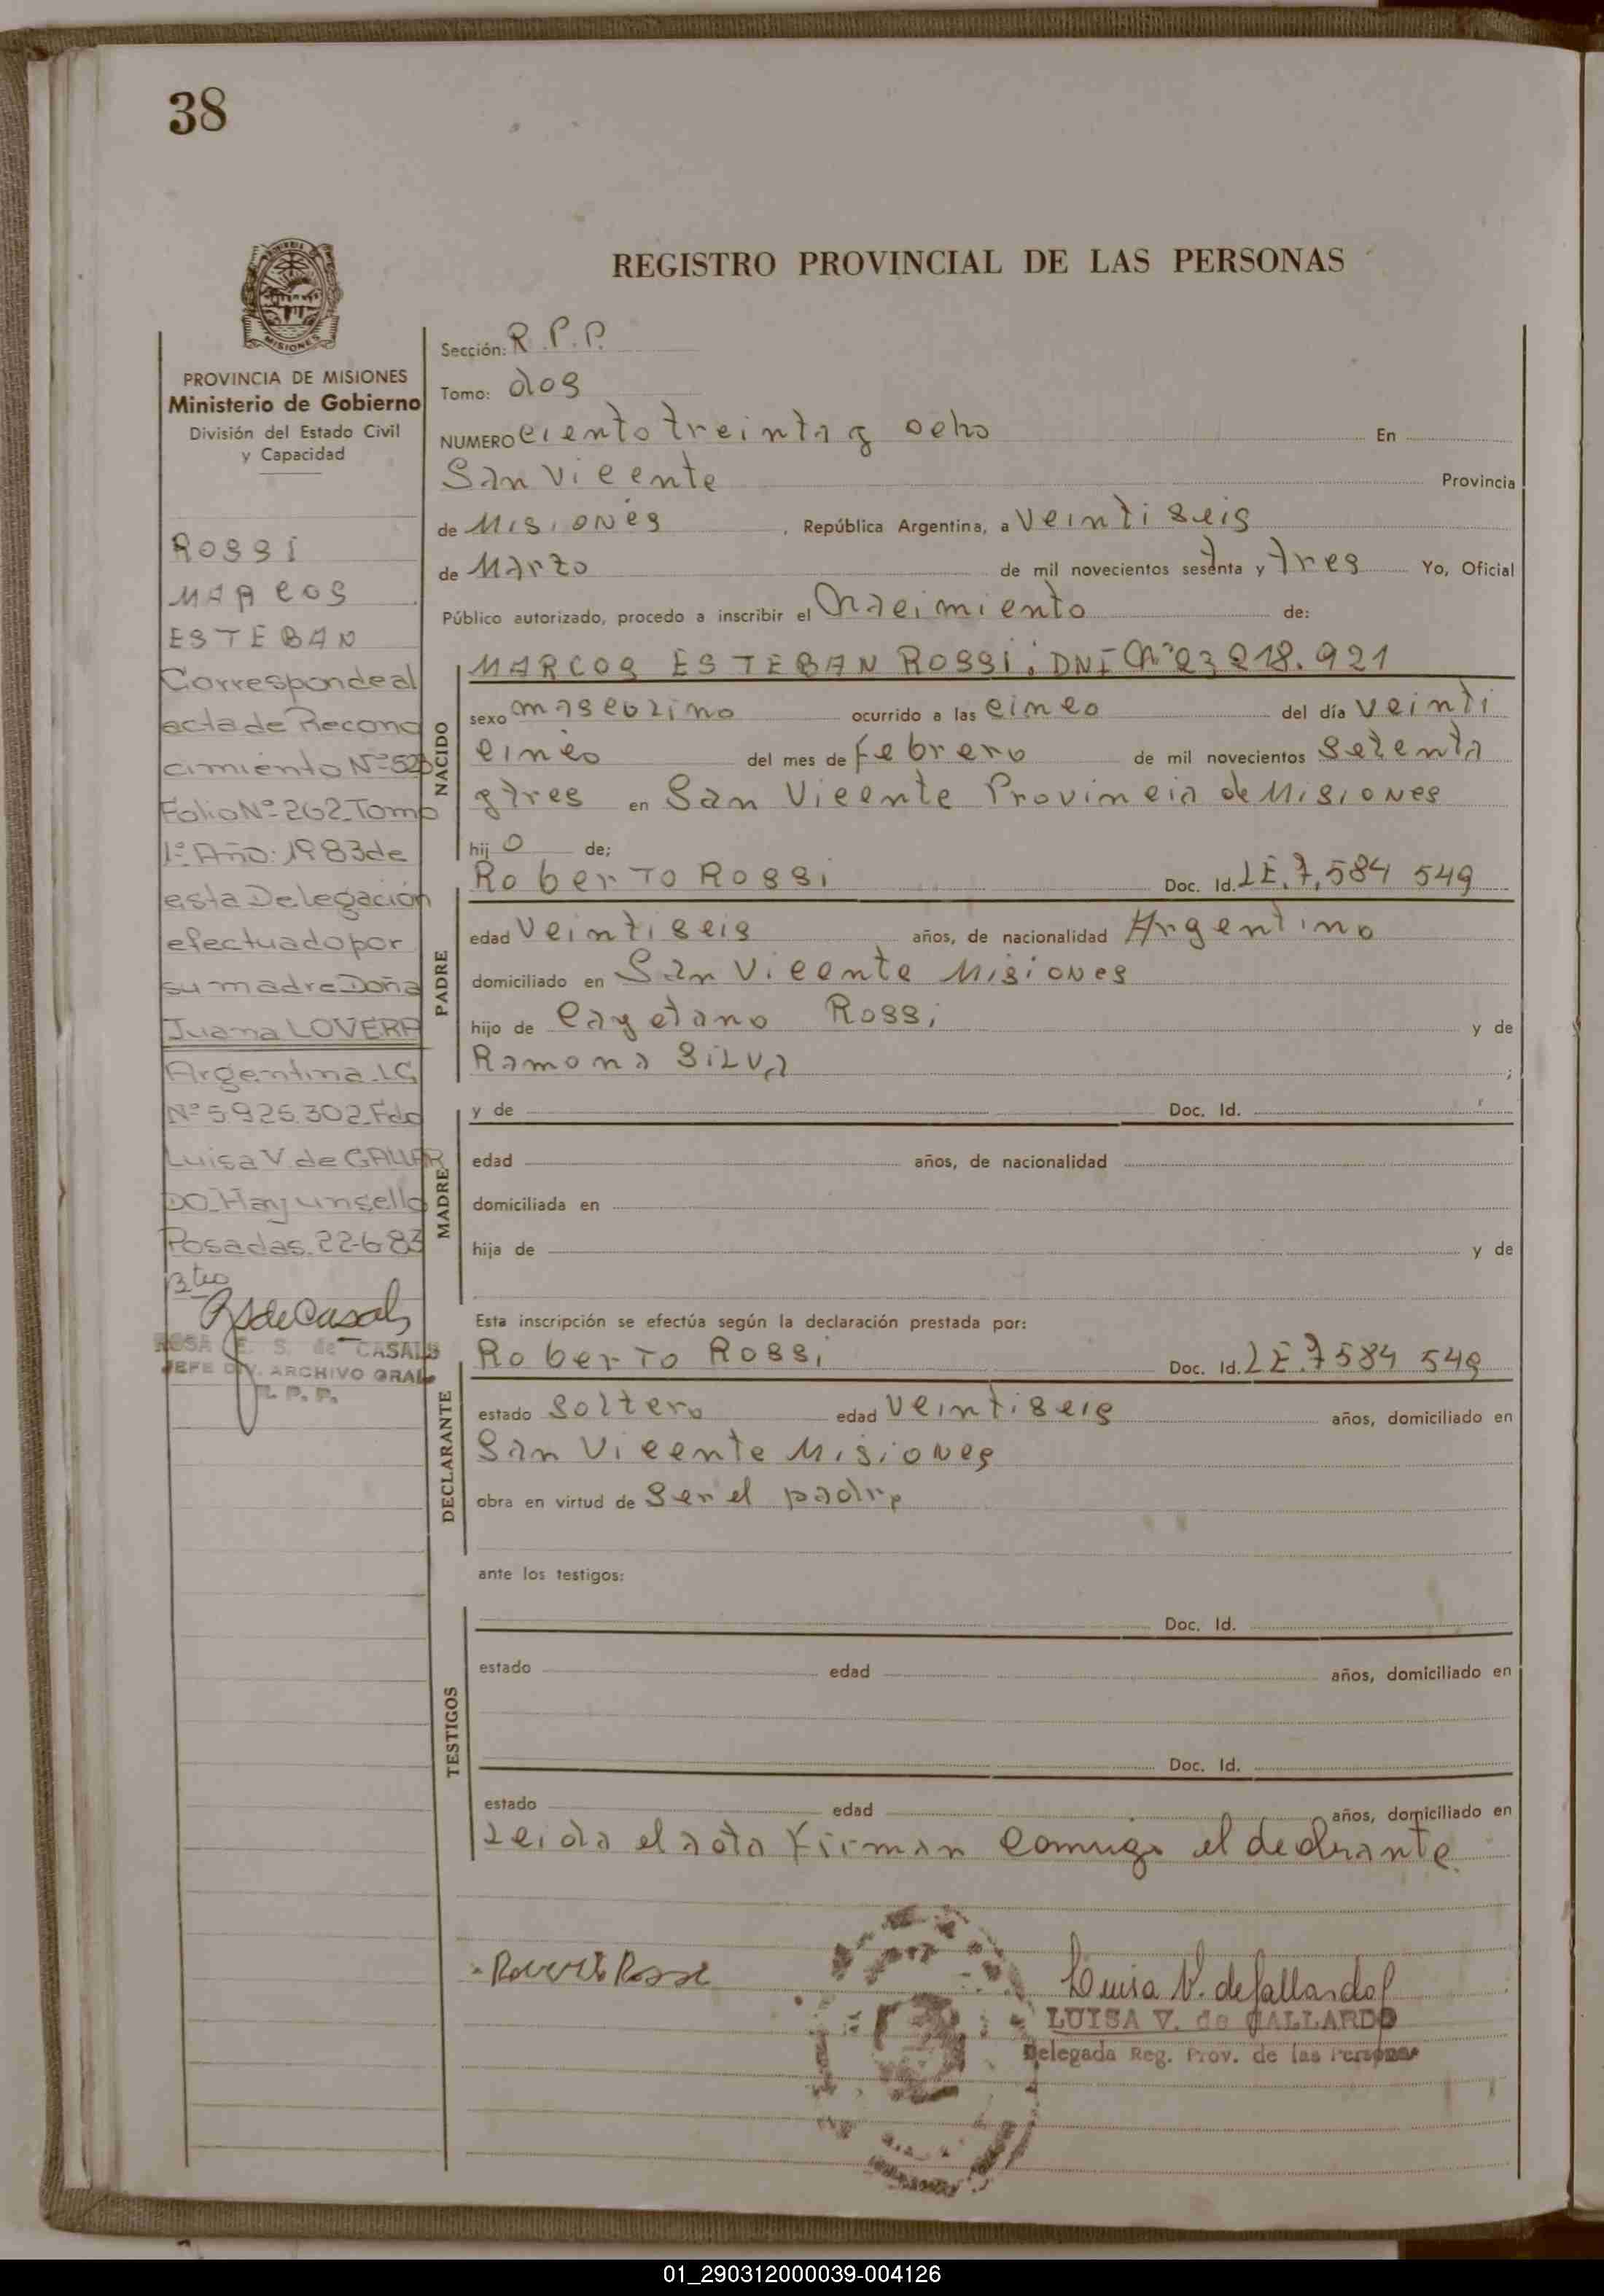 38
REGISTRO PROVINCIAL DE LAS PERSONAS
MISIONES
PROVINCIA DE MISIONES
Ministerio de Gobierno
División del Estado Civil
y Capacidad
ROSSI
MARCOS
ESTEBAN
Corresponde al
acta de Recono
cimiento Nº 523
Folio Nº 262 Tomo
1º Año: 1983 de
esta Delegación
efectuado por
su madre Doña
Juana LOVERA
Argentina LC
Nº 5.925.302 Fdo
Luisa V. de GALLAR
DO Hay un sello
Posadas, 22-6-83
ROSA E. S. de CASALS
JEFE DIV. ARCHIVO GRAL
R. P. P.
Sección: R.P.P.
Tomo: dos
NUMERO ciento treinta y ocho En
San Vicente Provincia
de Misiones , República Argentina, a Veintiseis
de Marzo de mil novecientos sesenta y tres Yo, Oficial
Público autorizado, procedo a inscribir el Nacimiento de:
NACIDO
MARCOS ESTEBAN ROSSI: DNI Nº 23,218.921
sexo masculino ocurrido a las cinco del día Veinti
cinco del mes de Febrero de mil novecientos Setenta
y tres en San Vicente Provincia de Misiones
hij o de;
PADRE
Roberto Rossi Doc. Id. LE.7,584 549
edad Veintiseis años, de nacionalidad Argentino
domiciliado en San Vicente Misiones
hijo de Cayetano Rossi y de
Ramona Silva ;
MADRE
y de Doc. Id.
edad años, de nacionalidad
domiciliada en
hija de y de
Esta inscripción se efectúa según la declaración prestada por:
DECLARANTE
Roberto Rossi Doc. Id. LE.7584 549
estado Soltero edad Veintiseis años, domiciliado en
San Vicente Misiones
obra en virtud de Ser el padre
ante los testigos:
TESTIGOS
Doc. Id.
estado edad años, domiciliado en
Doc. Id.
estado edad años, domiciliado en
Leida el acta Firman conmigo el declarante
Luisa V. de Gallardo
LUISA V. de GALLARDO
Delegada Reg. Prov. de las Personas
01_290312000039-004126